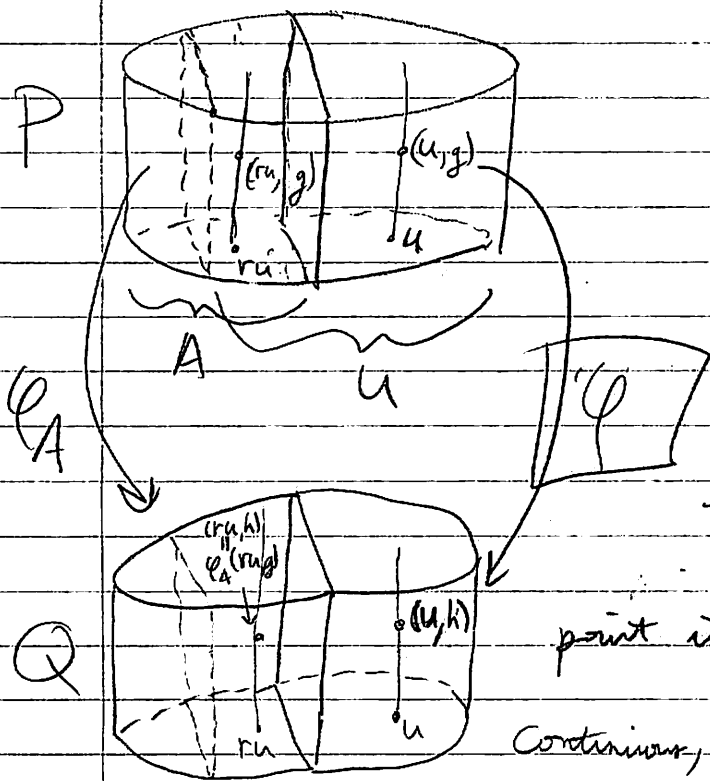 P
(ru, g)
(u, g)
ru
u
A
U
φ_A
φ
(ru, h)
||
φ_A(ru, g)
(u, h)
Q
point
ru
u
Continuous,